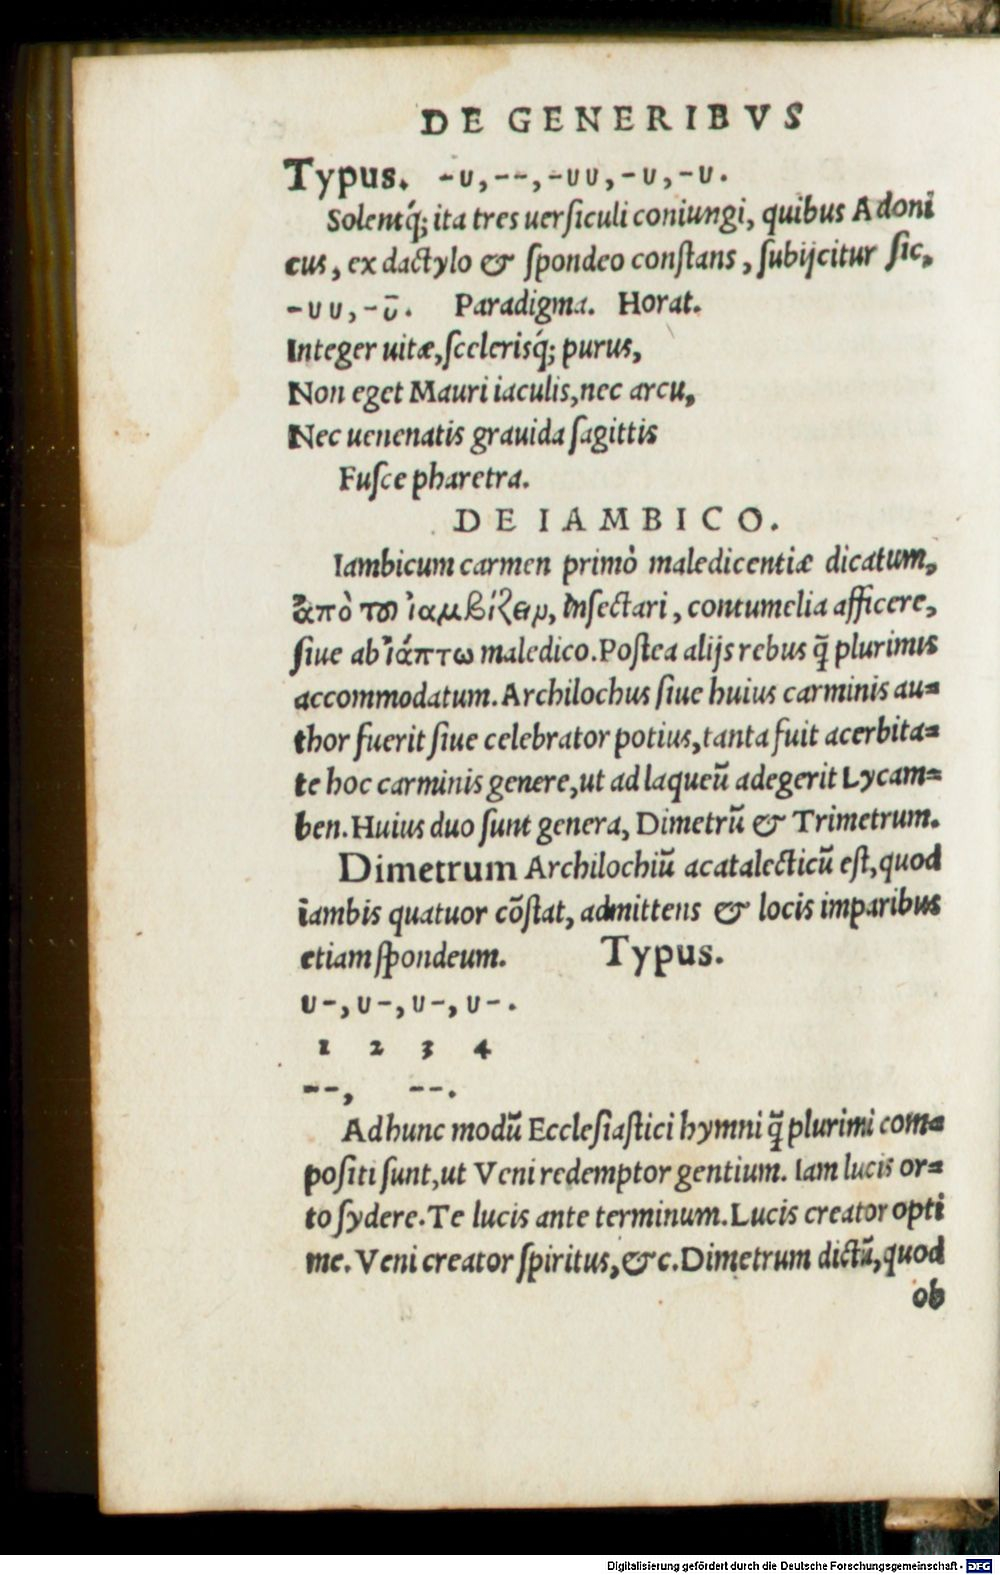 DE GENERIBVS
Typus. -υ,--,-υυ,-υ,-υ.
Solentq́; ita tres uerſiculi coniungi, quibus Adoni
cus, ex dactylo & ſpondeo conſtans, ſubijcitur ſic,
-υυ,-ῡ. Paradigma. Horat.
Integer uitæ,ſcelerisq́; purus,
Non eget Mauri iaculis,nec arcu,
Nec uenenatis grauida ſagittis
Fuſce pharetra.
DE IAMBICO.
Iambicum carmen primò maledicentiæ dicatum,
ἀπὸ τοῦ ἰαμβίζειν, inſectari, contumelia afficere,
ſiue ab ἰάπτω maledico.Poſtea alijs rebus q̃ plurimis
accommodatum.Archilochus ſiue huius carminis au=
thor fuerit ſiue celebrator potius,tanta fuit acerbita=
te hoc carminis genere,ut ad laqueũ adegerit Lycam=
ben.Huius duo ſunt genera, Dimetrũ & Trimetrum.
Dimetrum Archilochiũ acatalecticũ eſt,quod
iambis quatuor cõſtat, admittens & locis imparibus
etiam ſpondeum. Typus.
υ-,υ-,υ-,υ-.
1 2 3 4
--, --.
Ad hunc modũ Eccleſiaſtici hymni q̃ plurimi com=
poſiti ſunt,ut Veni redemptor gentium. Iam lucis or=
to ſydere.Te lucis ante terminum.Lucis creator opti
me.Veni creator ſpiritus,&c.Dimetrum dictũ,quod
ob
Digitalisierung gefördert durch die Deutsche Forschungsgemeinschaft - DFG